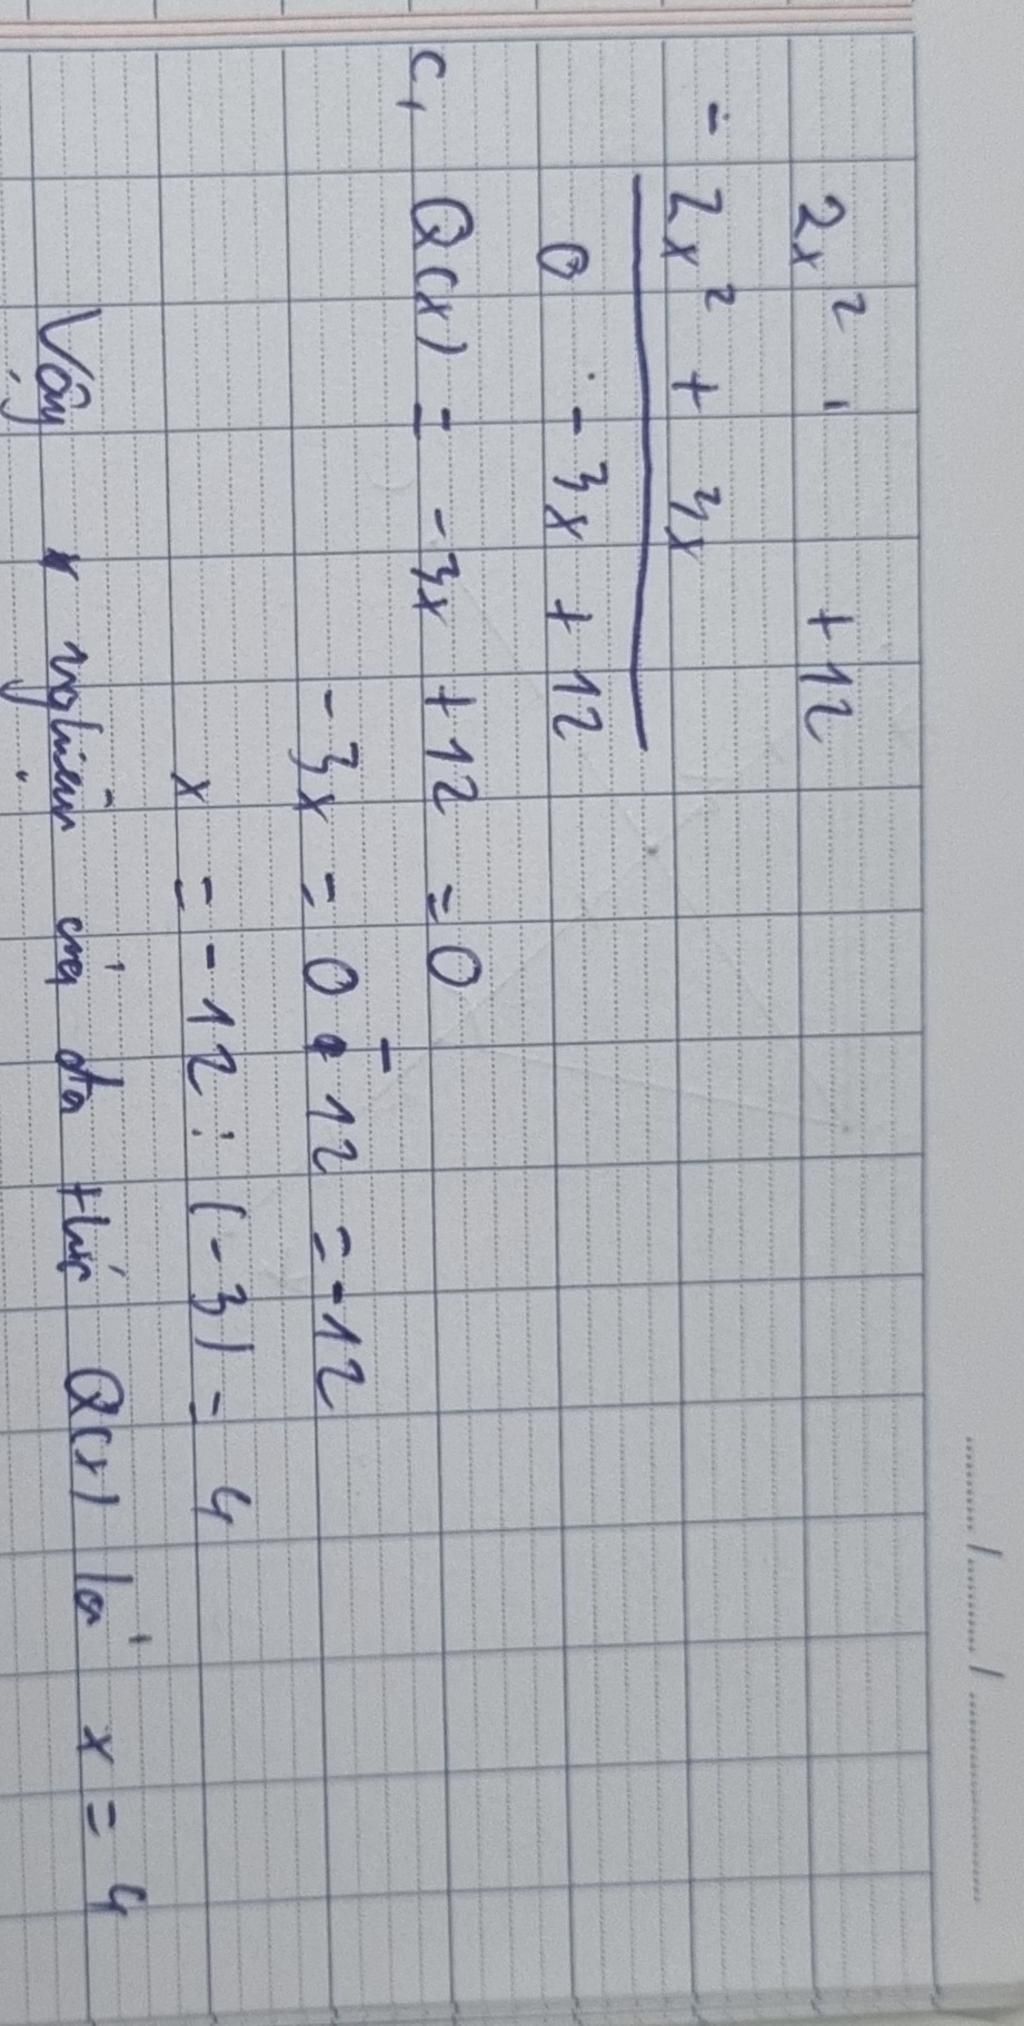 2x² +12
- 2x² + 3x
0 - 3x + 12
c, Q(x) = -3x +12 = 0
-3x = 0 - 12 = -12
x = -12 : (-3) = 4
Vậy nghiệm của đa thức Q(x) là x = 4